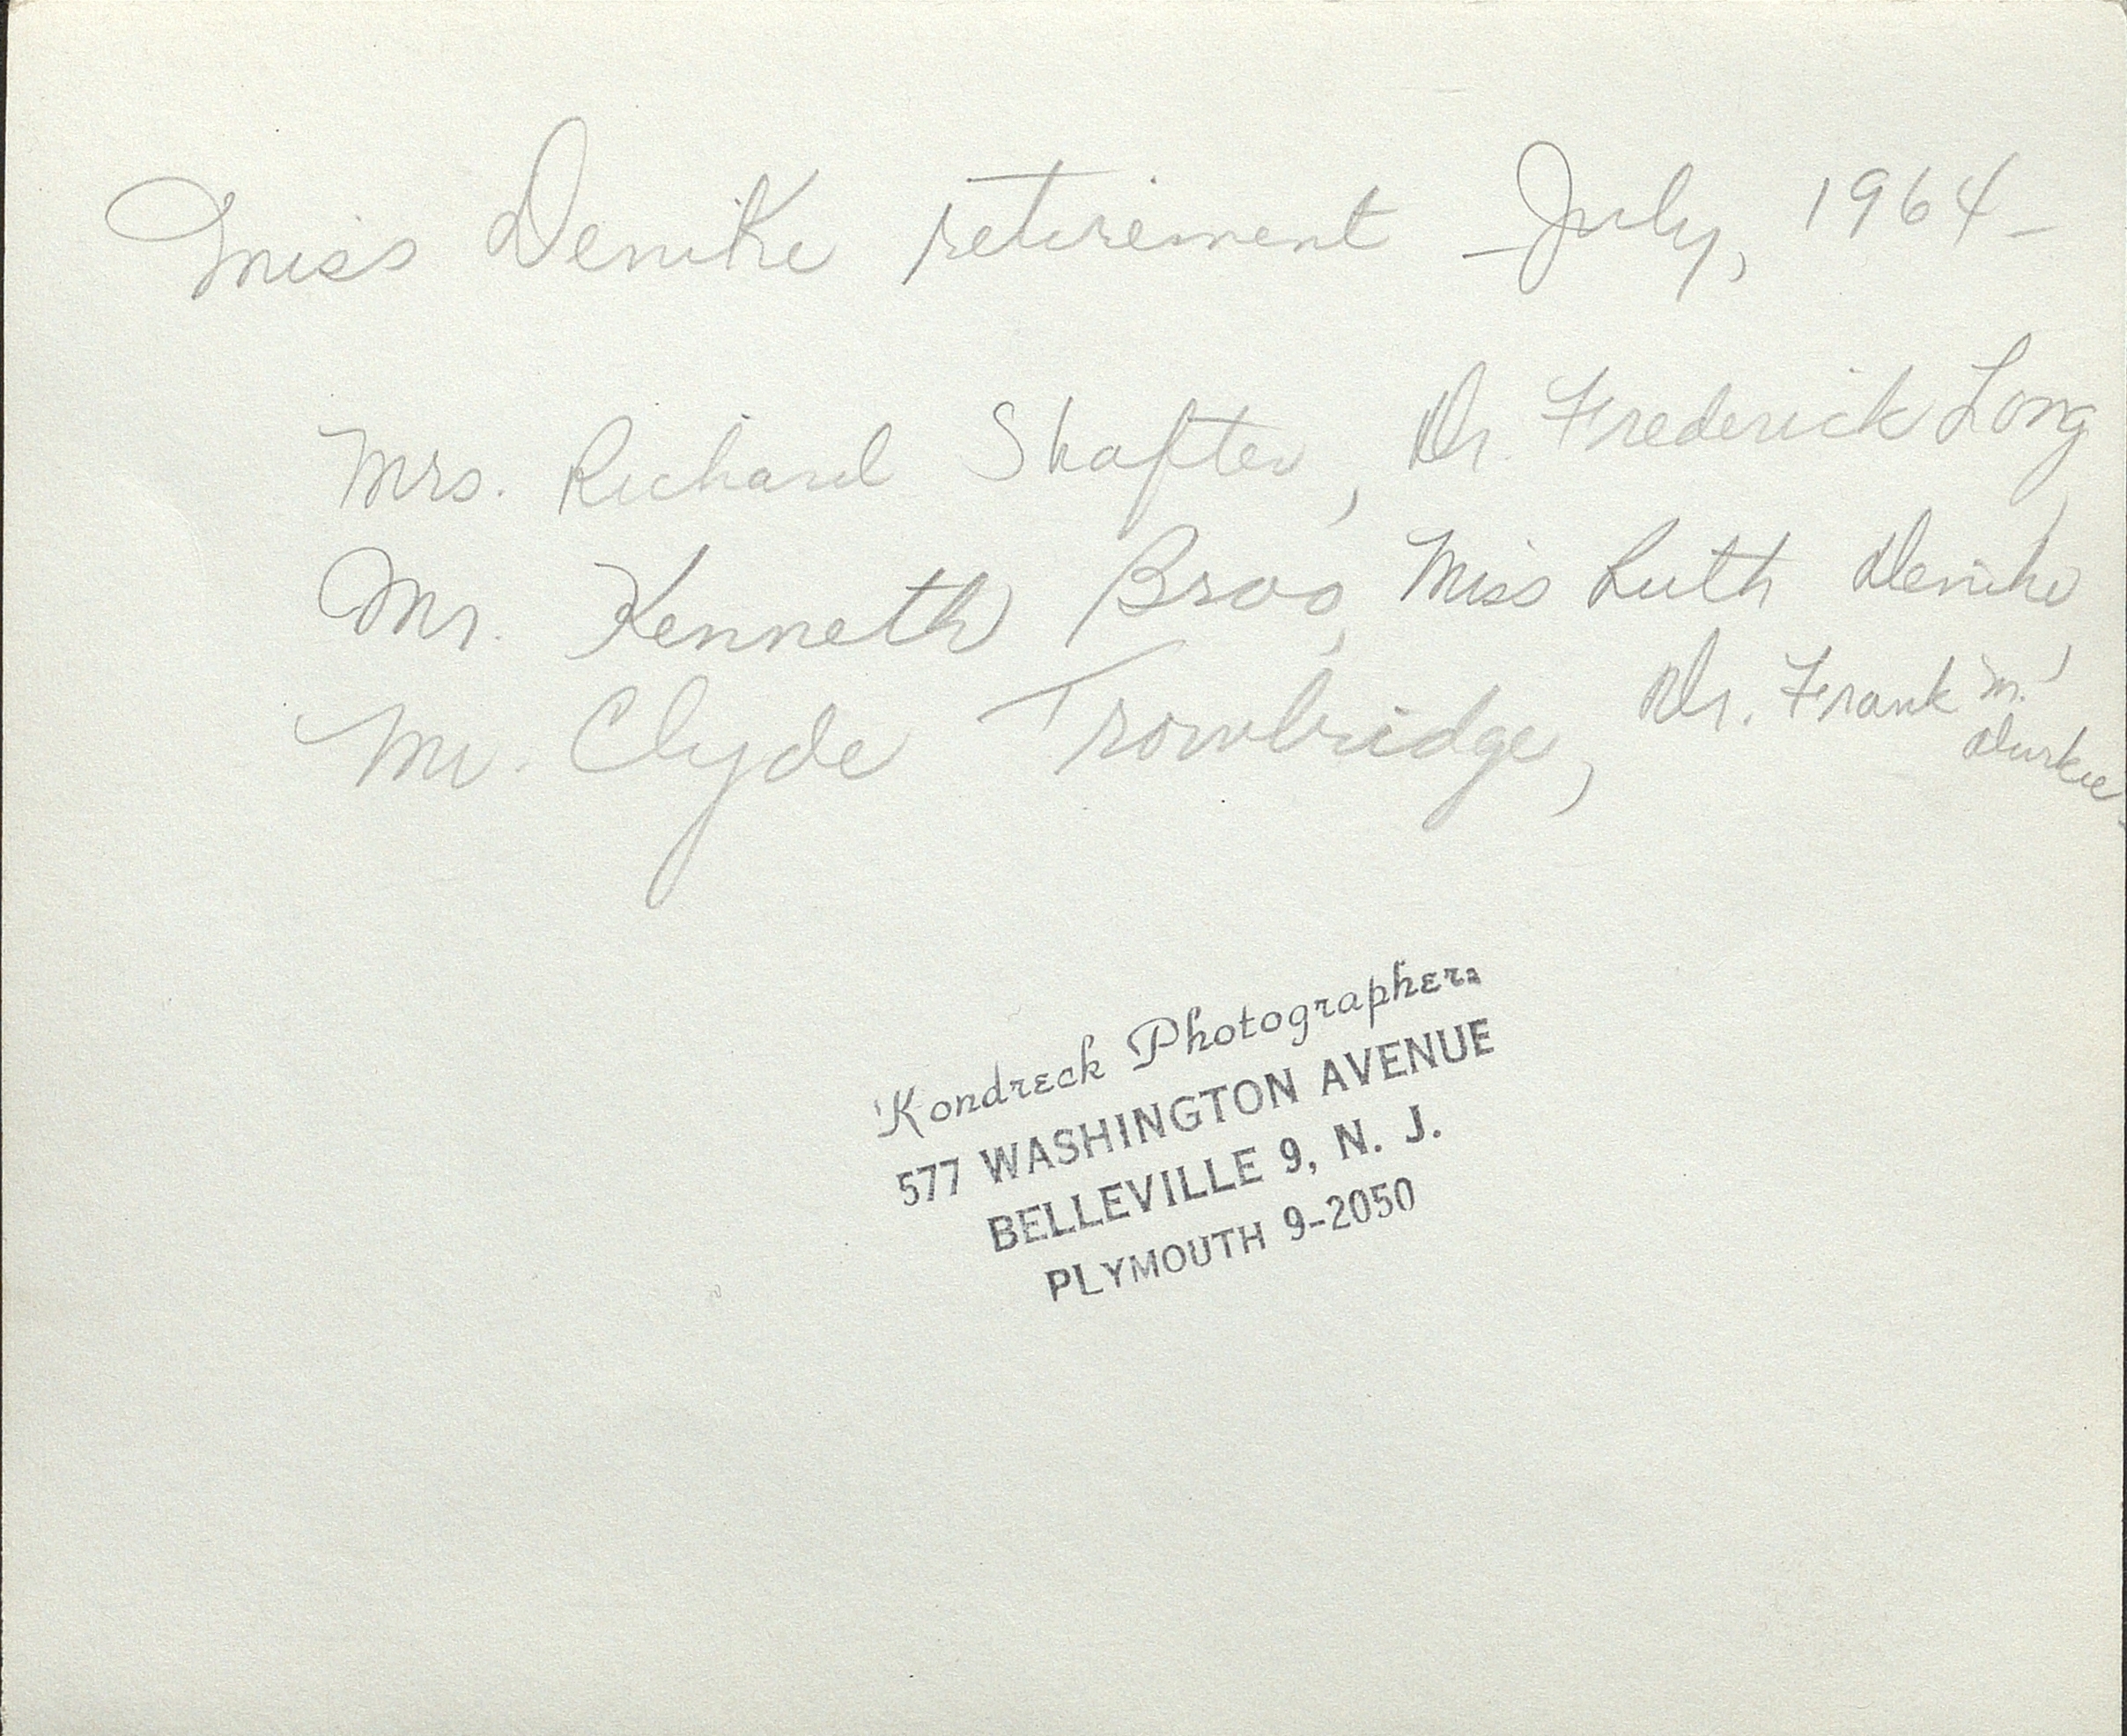 Miss Denike retirement - July, 1964 -
Mrs. Richard Shafter, Dr. Frederick Long,
Mr. Kenneth Broo, Miss Ruth Denike,
Mr. Clyde Trowbridge, Dr. Frank M.
Durkee
Kondreck Photographers
577 WASHINGTON AVENUE
BELLEVILLE 9, N. J.
PLYMOUTH 9-2050